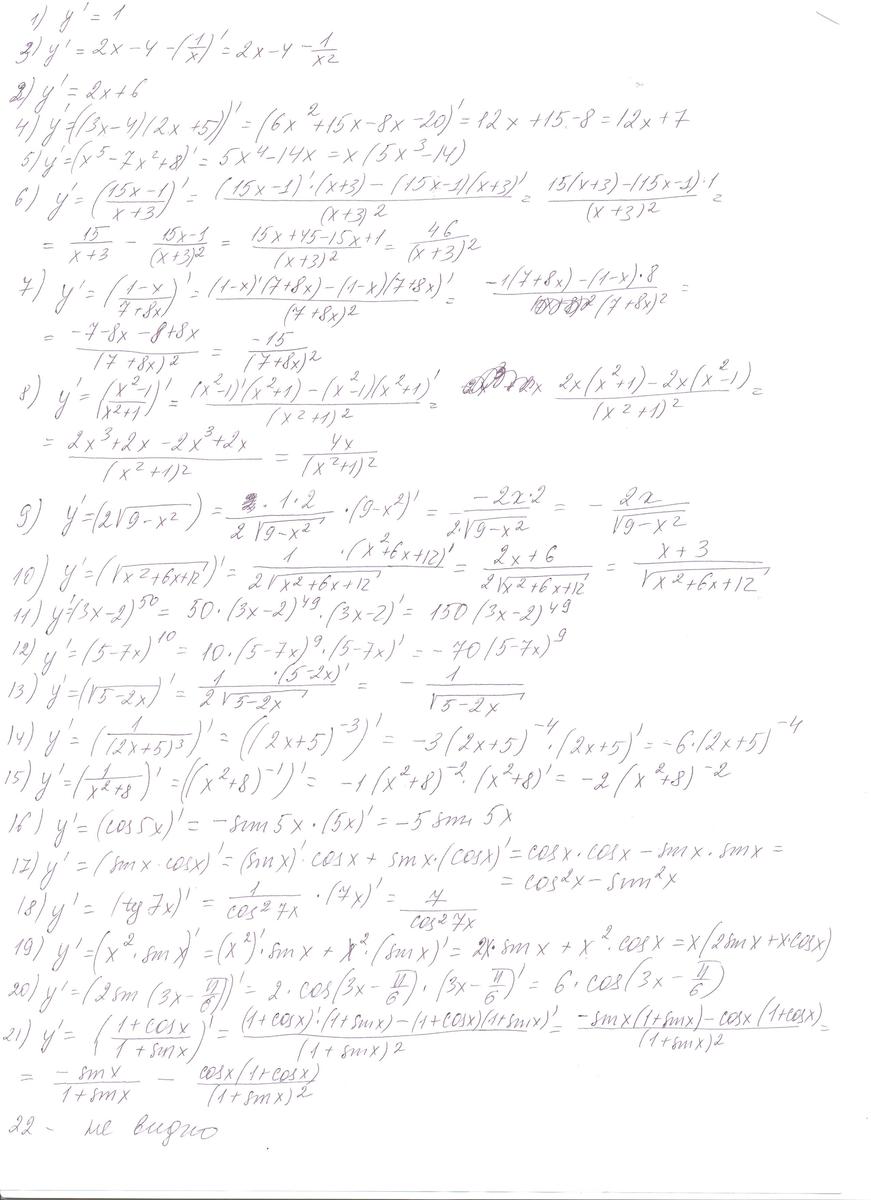 1) y' = 1
3) y' = 2x - 4 - (1/x)' = 2x - 4 - 1/x²
2) y' = 2x + 6
4) y' = ((3x-4)(2x+5))' = (6x² + 15x - 8x - 20)' = 12x + 15 - 8 = 12x + 7
5) y' = (x⁵ - 7x² + 8)' = 5x⁴ - 14x = x(5x³ - 14)
6) y' = ((15x-1)/(x+3))' = ((15x-1)'·(x+3) - (15x-1)(x+3)')/(x+3)² = (15(x+3) - (15x-1)·1)/(x+3)² =
= 15/(x+3) - (15x-1)/(x+3)² = (15x+45-15x+1)/(x+3)² = 46/(x+3)²
7) y' = ((1-x)/(7+8x))' = ((1-x)'(7+8x) - (1-x)(7+8x)')/(7+8x)² = (-1(7+8x) - (1-x)·8)/(7+8x)² =
= (-7-8x-8+8x)/(7+8x)² = -15/(7+8x)²
8) y' = ((x²-1)/(x²+1))' = ((x²-1)'(x²+1) - (x²-1)(x²+1)')/(x²+1)² = (2x(x²+1) - 2x(x²-1))/(x²+1)² =
= (2x³+2x-2x³+2x)/(x²+1)² = 4x/(x²+1)²
9) y' = (2√(9-x²)) = (1·2)/(2√(9-x²)) · (9-x²)' = (-2x·2)/(2·√(9-x²)) = - 2x/√(9-x²)
10) y' = (√(x²+6x+12))' = (1·(x²+6x+12)')/(2√(x²+6x+12)) = (2x+6)/(2√(x²+6x+12)) = (x+3)/√(x²+6x+12)
11) y' = (3x-2)⁵⁰ = 50·(3x-2)⁴⁹·(3x-2)' = 150(3x-2)⁴⁹
12) y' = (5-7x)¹⁰ = 10·(5-7x)⁹·(5-7x)' = -70(5-7x)⁹
13) y' = (√(5-2x))' = (1·(5-2x)')/(2√(5-2x)) = - 1/√(5-2x)
14) y' = (1/((2x+5)³))' = ((2x+5)⁻³)' = -3(2x+5)⁻⁴·(2x+5)' = -6·(2x+5)⁻⁴
15) y' = (1/(x²+8))' = ((x²+8)⁻¹)' = -1(x²+8)⁻²·(x²+8)' = -2(x²+8)⁻²
16) y' = (cos5x)' = -sin5x·(5x)' = -5sin5x
17) y' = (sinx·cosx)' = (sinx)'·cosx + sinx·(cosx)' = cosx·cosx - sinx·sinx =
= cos²x - sin²x
18) y' = (tg7x)' = 1/cos²7x · (7x)' = 7/cos²7x
19) y' = (x²·sinx)' = (x²)'·sinx + x²·(sinx)' = 2x·sinx + x²·cosx = x(2sinx + x·cosx)
20) y' = (2sin(3x - π/6))' = 2·cos(3x - π/6)·(3x - π/6)' = 6·cos(3x - π/6)
21) y' = ((1+cosx)/(1+sinx))' = ((1+cosx)'·(1+sinx) - (1+cosx)(1+sinx)')/(1+sinx)² = (-sinx(1+sinx) - cosx(1+cosx))/(1+sinx)² =
= -sinx/(1+sinx) - cosx(1+cosx)/(1+sinx)²
22 - не видно